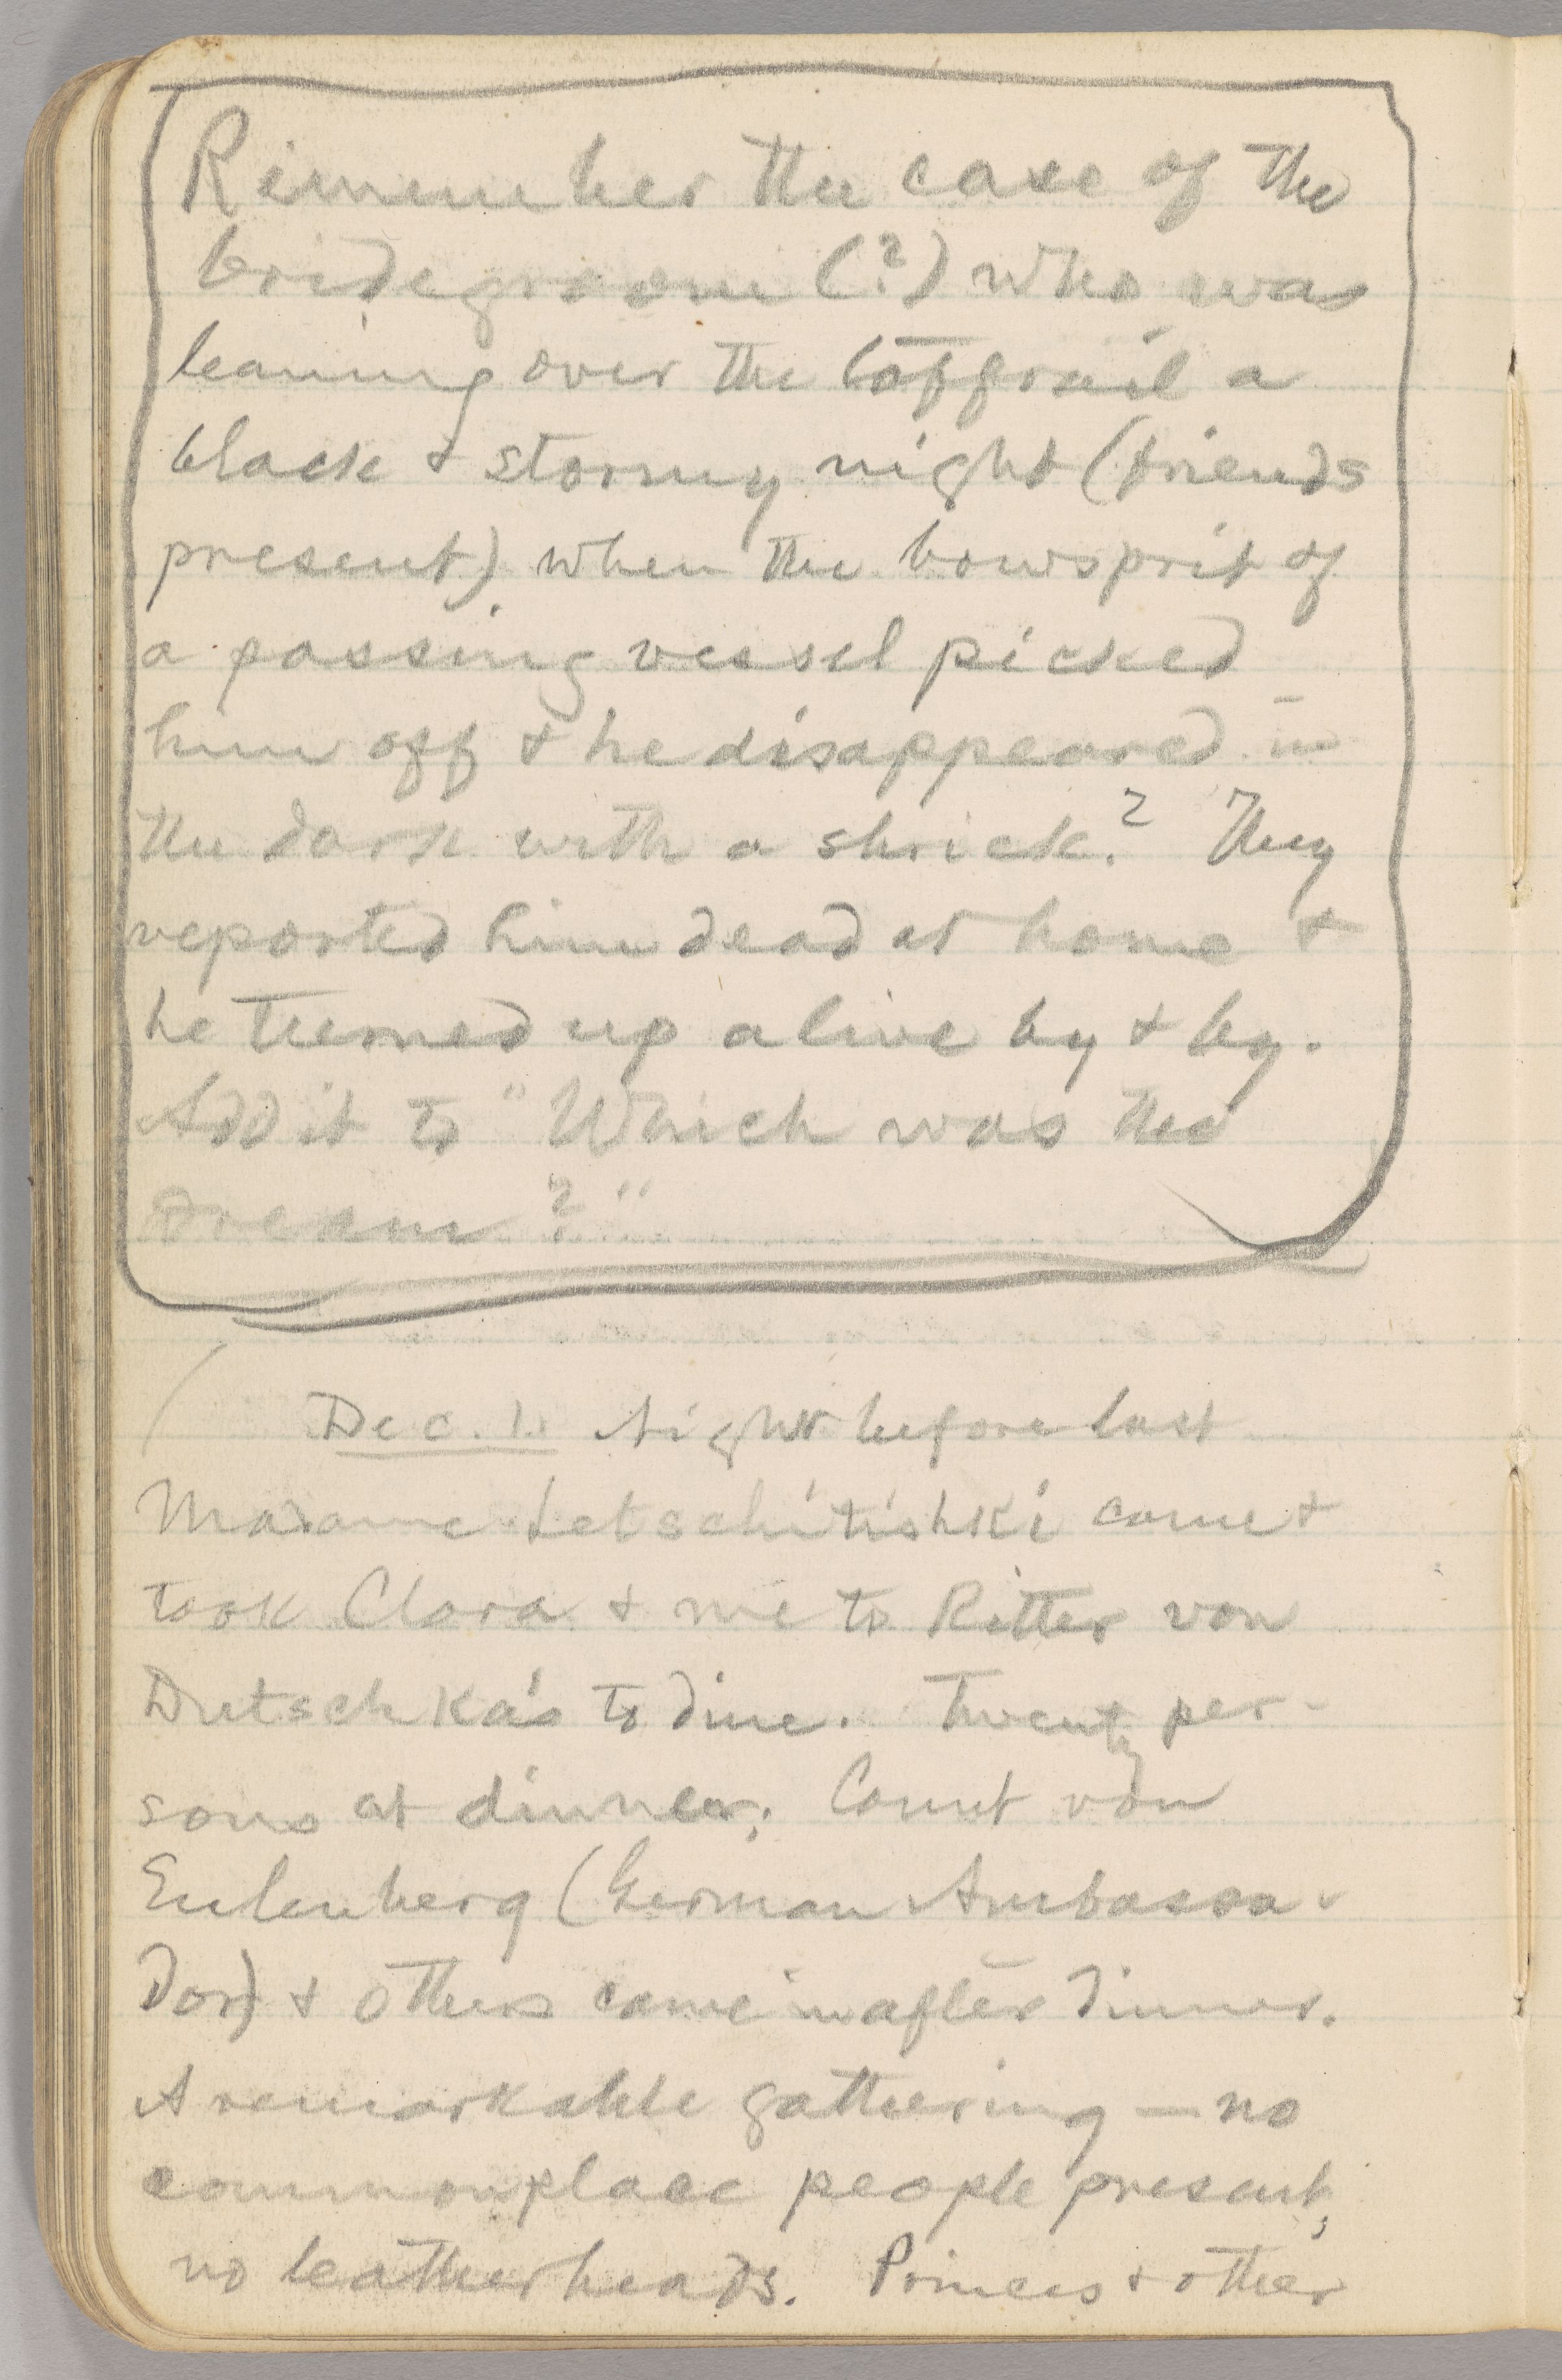 Remember the case of the
bridegroom (?) who was
leaning over the taffrail a
black & stormy night (friends
present) when the bowsprit of
a passing vessel picked
him off & he disappeared in
the dark with a shriek? They
reported him dead at home &
he turned up alive by & by.
Add it to "Which was the
Dream?"
Dec. 1. Night before last
Madame Letschitishki came &
took Clara & me to Ritter von
Dutschka's to dine. Twenty per-
sons at dinner; Count von
Eulenberg (German Ambassa-
dor) & others came in after dinner.
A remarkable gathering — no
commonplace people present,
no leatherheads. Princes & other